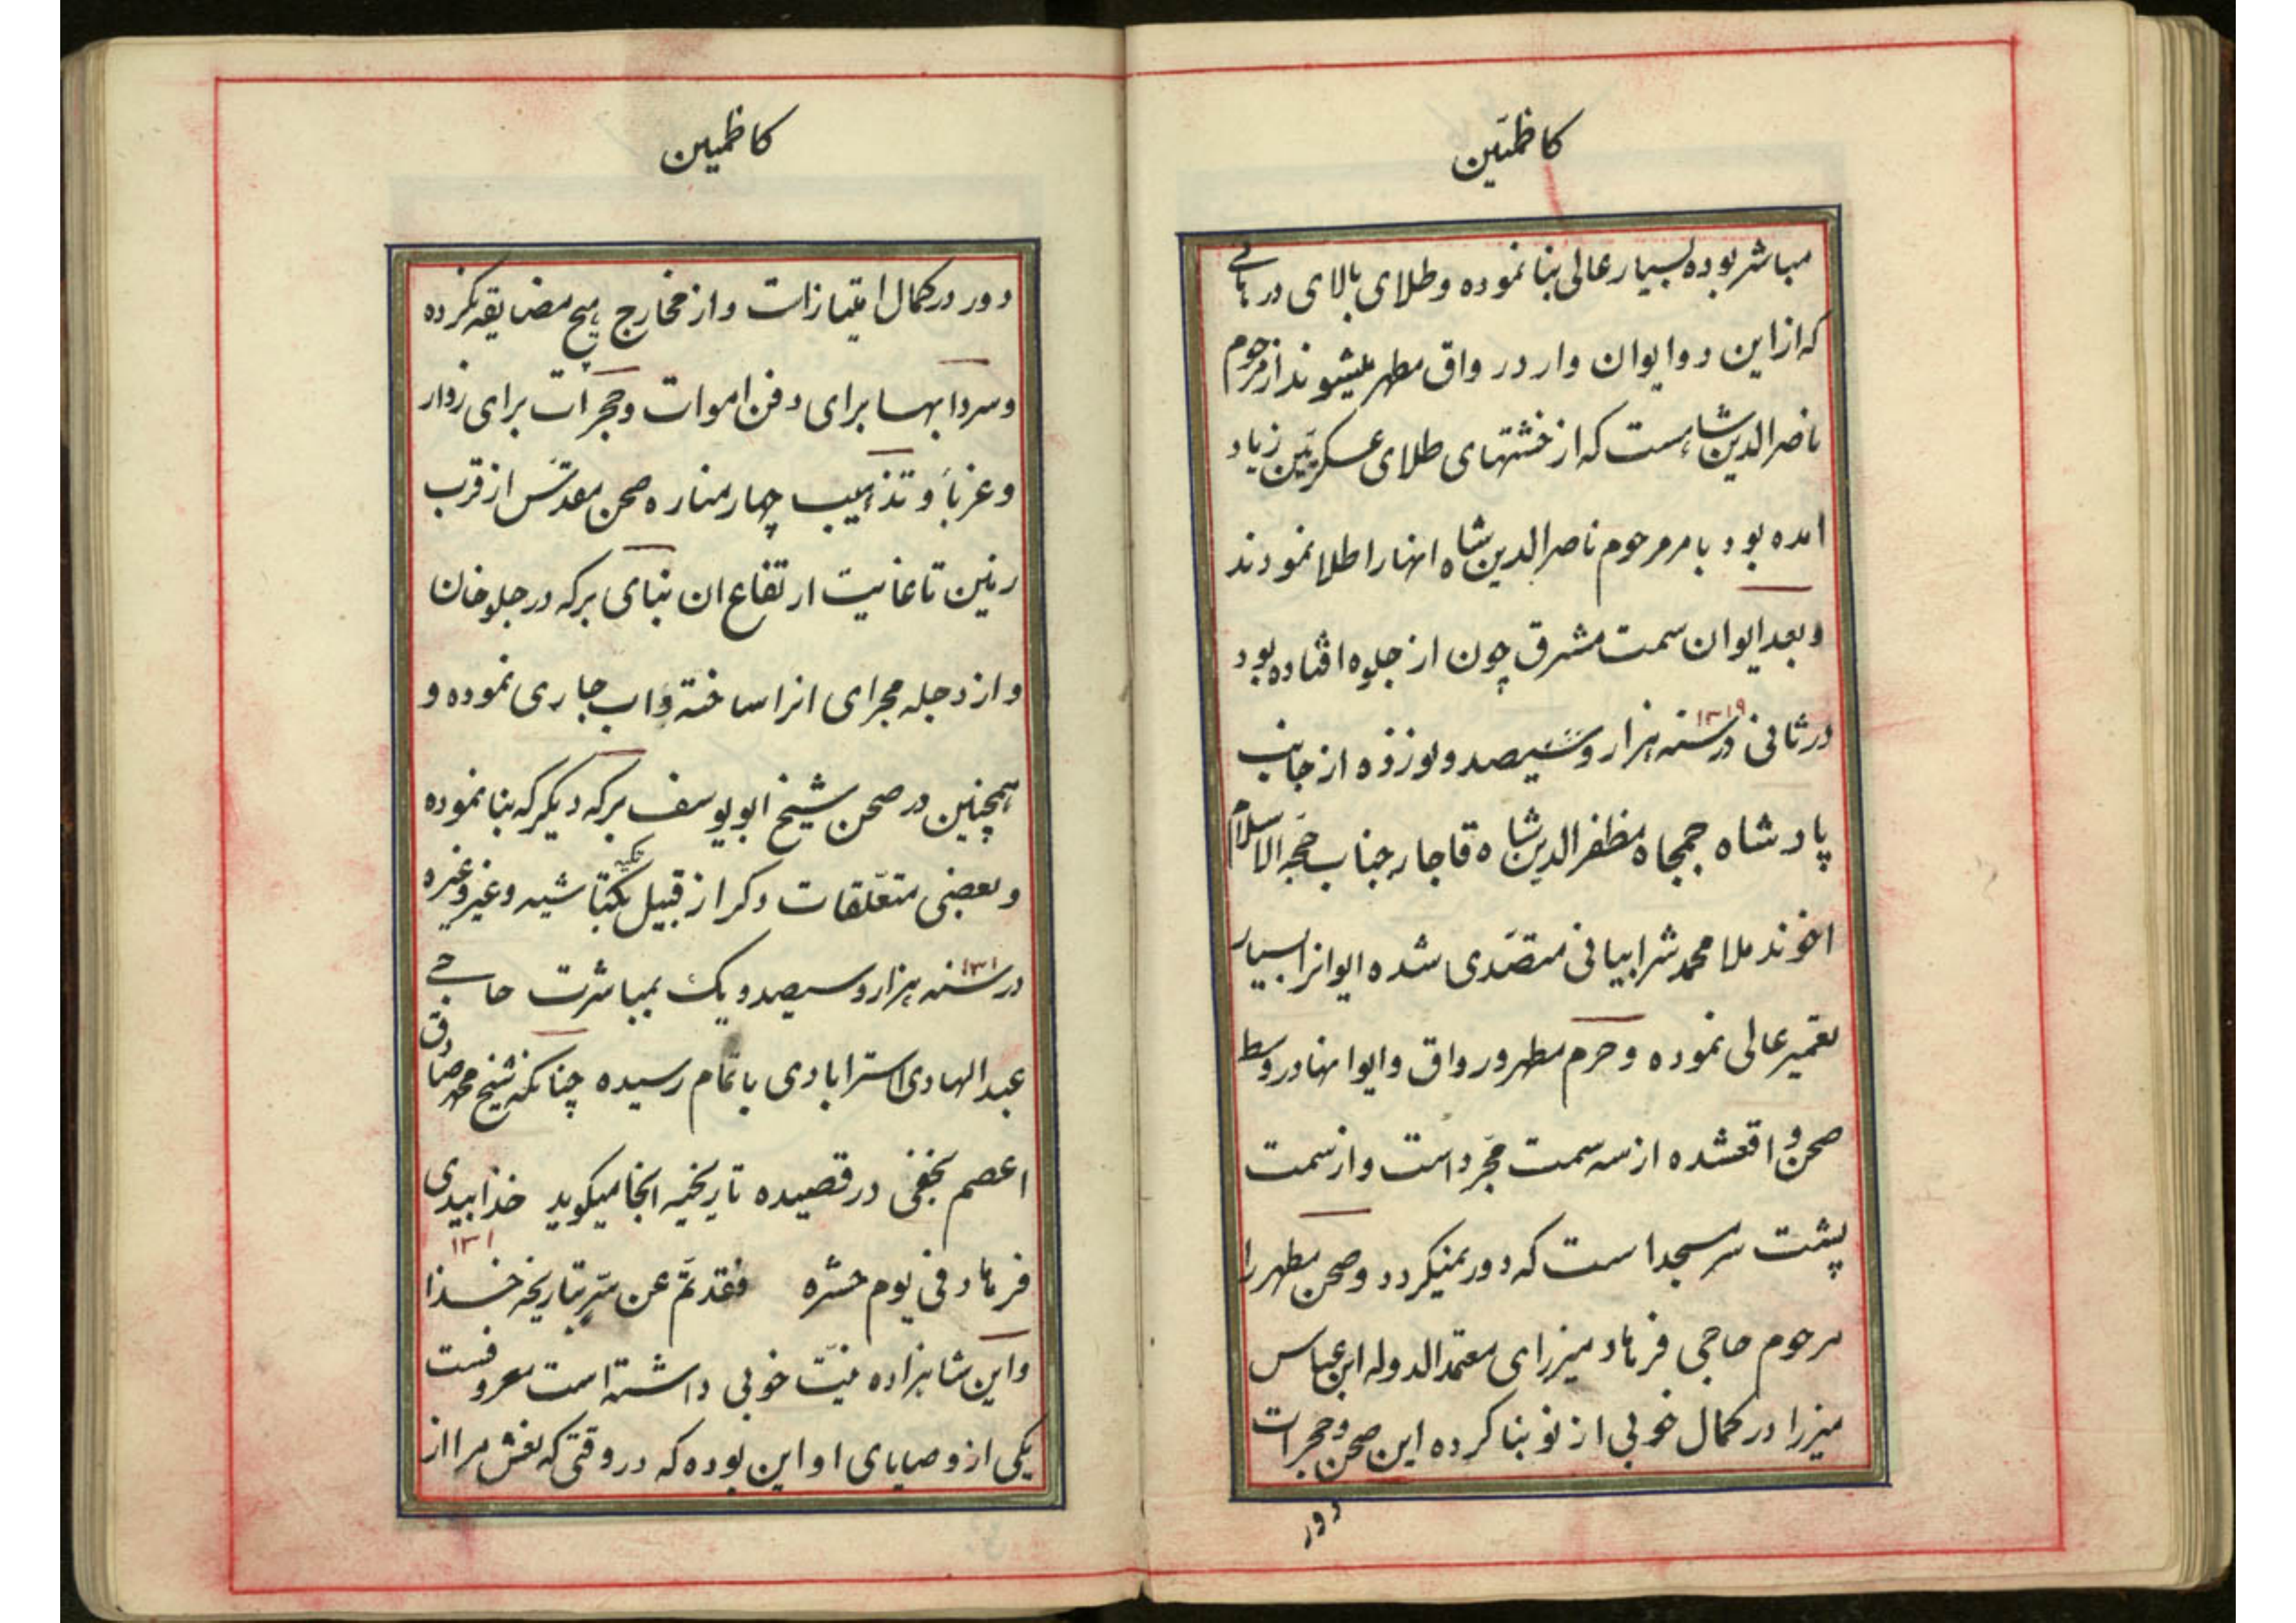 کاظمَین
مباشر بوده بسیار عالی بنا نموده و طلای بالای درهائی
که از این دو ایوان وارد رواق مطهر میشوند از مرحوم
ناصرالدین شاه است که از خشتهای طلای عسکریّین زیاد
امده بود بامر مرحوم ناصرالدین شاه انها را طلا نمودند
و بعد ایوان سمت مشرق چون از جلوه افتاده بود
در ثانی در سنه ۱۳۱۹ هزار و سیصد و نوزده از جانب
پادشاه جمجاه مظفرالدین شاه قاجار جناب حجّه الاسلام
اخوند ملا محمد شرابیانی متصّدی شده ایوانرا بسیار
تعمیر عالی نموده و حرم مطهر و رواق و ایوانها در وسط
صحن واقعشده از سه سمت مجّرد است و از سمت
پشت سر مسجد است که دور نمیکردد و صحن مطهر را
مرحوم حاجی فرهاد میرزای معتمد الدوله ابن عباس
میرزا در کمال خوبی از نو بنا کرده این صحن و حجرات
دور
کاظمین
دور در کمال امتیاز است و از مخارج هیچ مضایقه نکرده
و سردابها برای دفن اموات و حجرات برای زوار
و غرباَ و تذهیب چهار مناره صحن مقدّس از قرب
زمین تا غایت ارتفاع ان بنای برکه در جلوخان
و از دجله مجرای انرا ساخته و اب جاری نموده و
همچنین در صحن شیخ ابو یوسف برکه دیکر که بنا نموده
و بعضی متعلّقات دکر از قبیل تکیه بکتاشیه و غیر و غیره
در سنه ۱۳۰۱ هزار و سیصد و یک بمباشرت حاجی
عبدالهادی استرابادی باتمام رسیده چنانکه شیخ محمد صادق
اعصم نجفی در قصیده تاریخیه انجا میکوید خذ ابیدی
فرهاد فی یوم حشره فقد تمّ عن سّر بتاریخه خذا ۱۳۰۱
و این شاهزاده نیّت خوبی داشته است معروفست
یکی از وصایای او این بوده که در وقتی که نعش مرا از